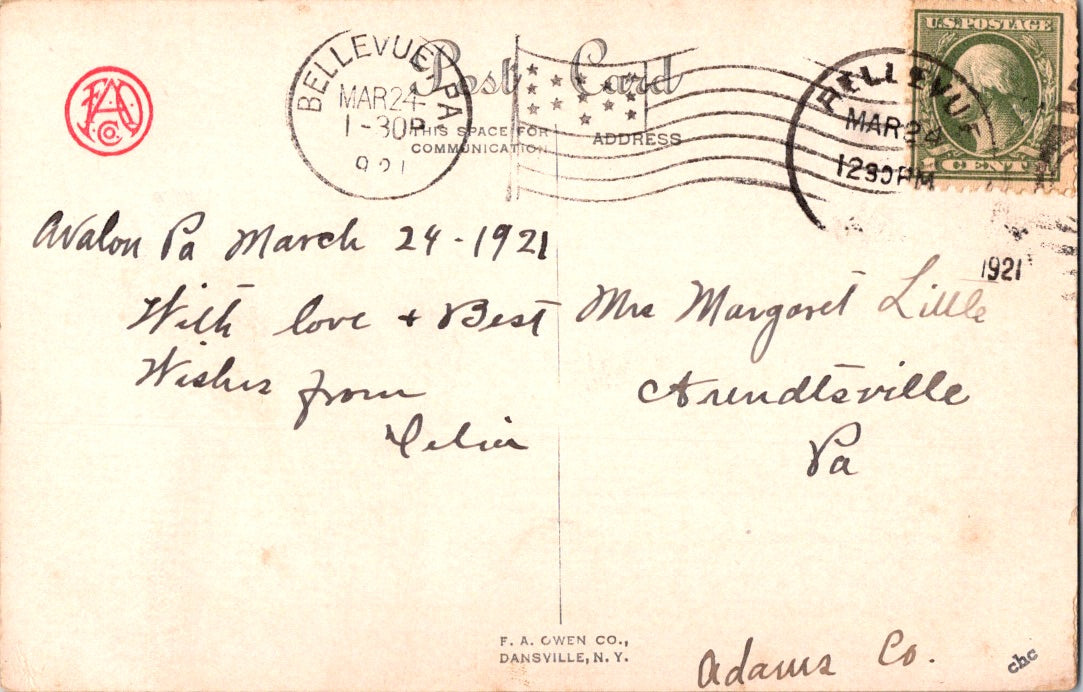 Post Card
BELLEVUE, PA
MAR 24
1-30P
1921
THIS SPACE FOR
COMMUNICATION
ADDRESS
U.S. POSTAGE
1 CENT 1
BELLEVUE
MAR 24
1230PM
1921
FAO
Co
Avalon Pa March 24-1921
With love + Best
Wishes from
Mrs Margaret Little
Arendtsville
Pa
F. A. OWEN CO.,
DANSVILLE, N. Y.
Adams Co.
chc